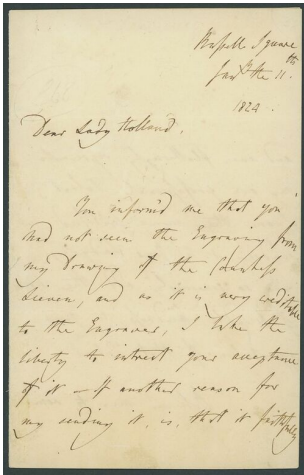 Russell Square
Jany the 11th
1824.
Dear Lady Holland.
You inform'd me that you
had not seen the Engraving from
my Drawing of the Countess
Lieven, and as it is very creditable
to the Engraver, I take the
liberty to intreat your acceptance
of it – If another reason for
my sending it, is, that it faithfully